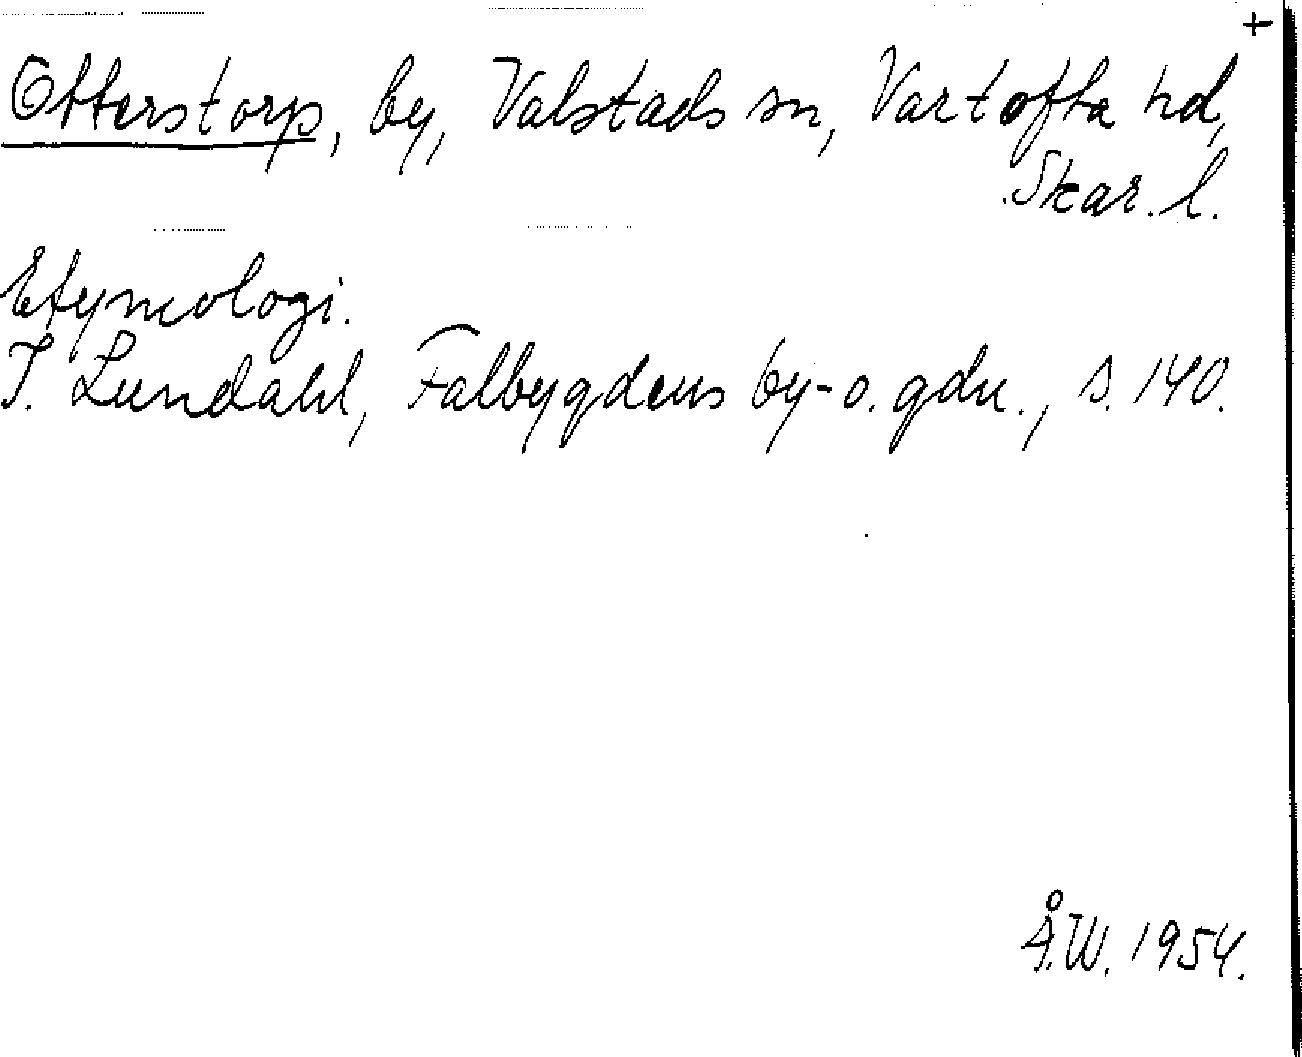 +
Otterstorp, by, Valstads sn, Vartofta hd,
Skar. l.
Etymologi.
I. Lundahl, Falbygdens by- o. gdn., s. 140.
Å.W. 1954.